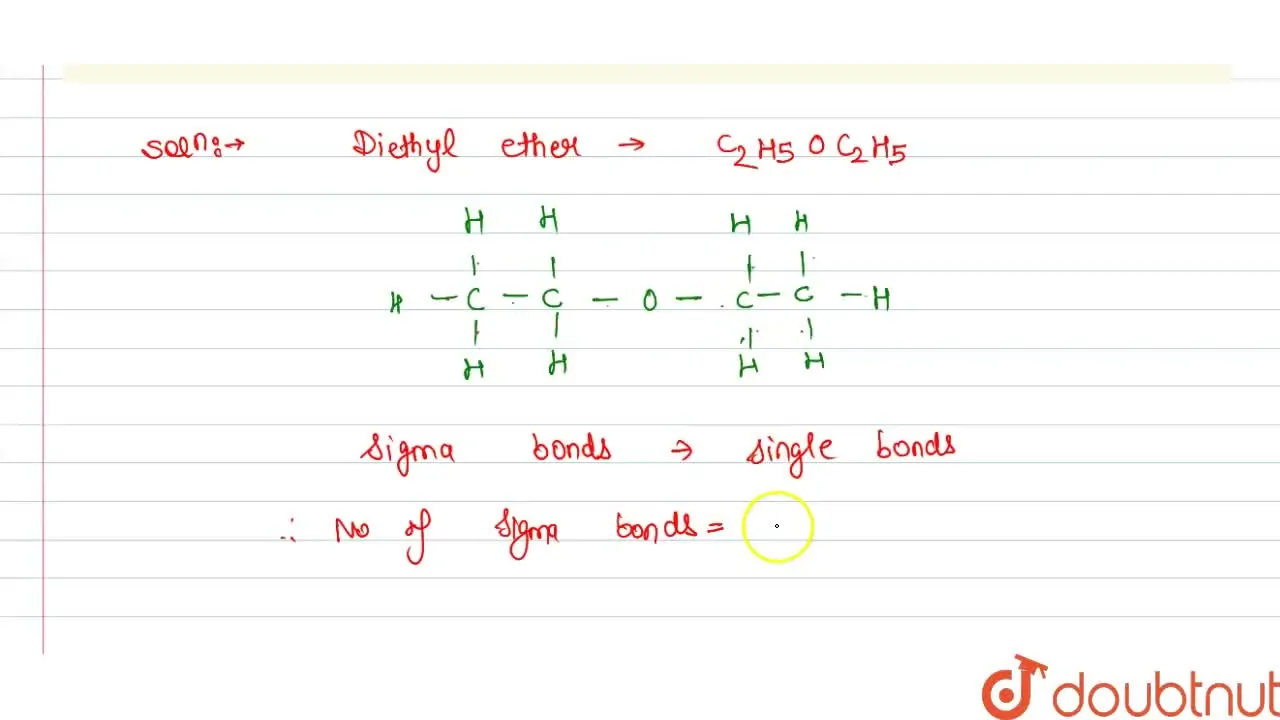 Soln:→ Diethyl ether → C2H5OC2H5
H H H H
| | | |
H — C — C — O — C — C — H
| | | |
H H H H
Sigma bonds → single bonds
∴ No of sigma bonds =
doubtnut